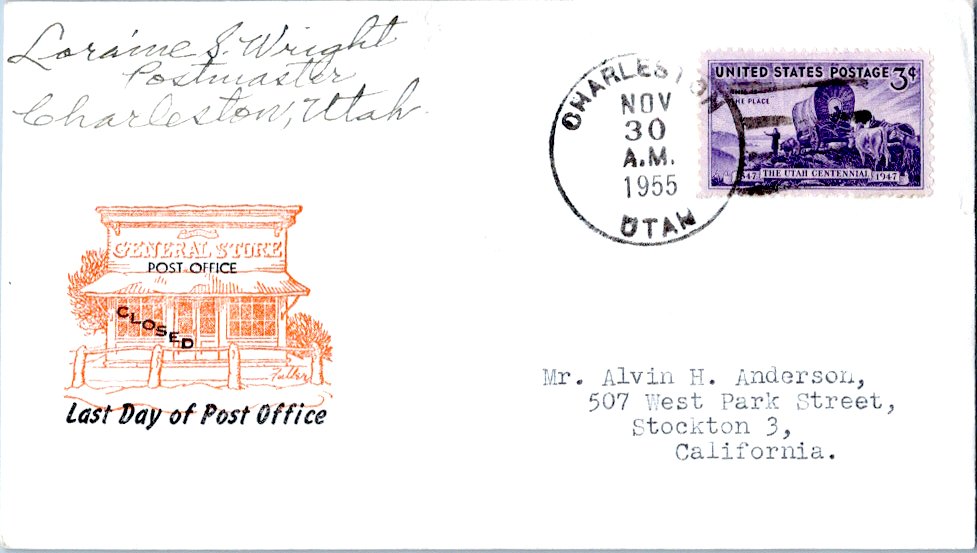 Loraine S. Wright
Postmaster
Charleston, Utah.
CHARLESTON
NOV
30
A.M.
1955
UTAH
UNITED STATES POSTAGE 3¢
THE PLACE
THE UTAH CENTENNIAL 1947
GENERAL STORE
POST OFFICE
CLOSED
Fuller
Last Day of Post Office
Mr. Alvin H. Anderson,
507 West Park Street,
Stockton 3,
California.